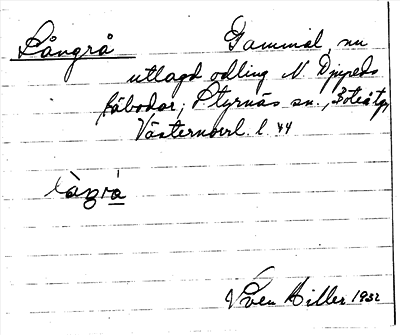 Långrå Gammal, nu
utlagd odling N. Djupeds
fäbodar; Styrnäs sn., Boteå tg,
Västernorrl. l. 44
Sven Hiller 1932